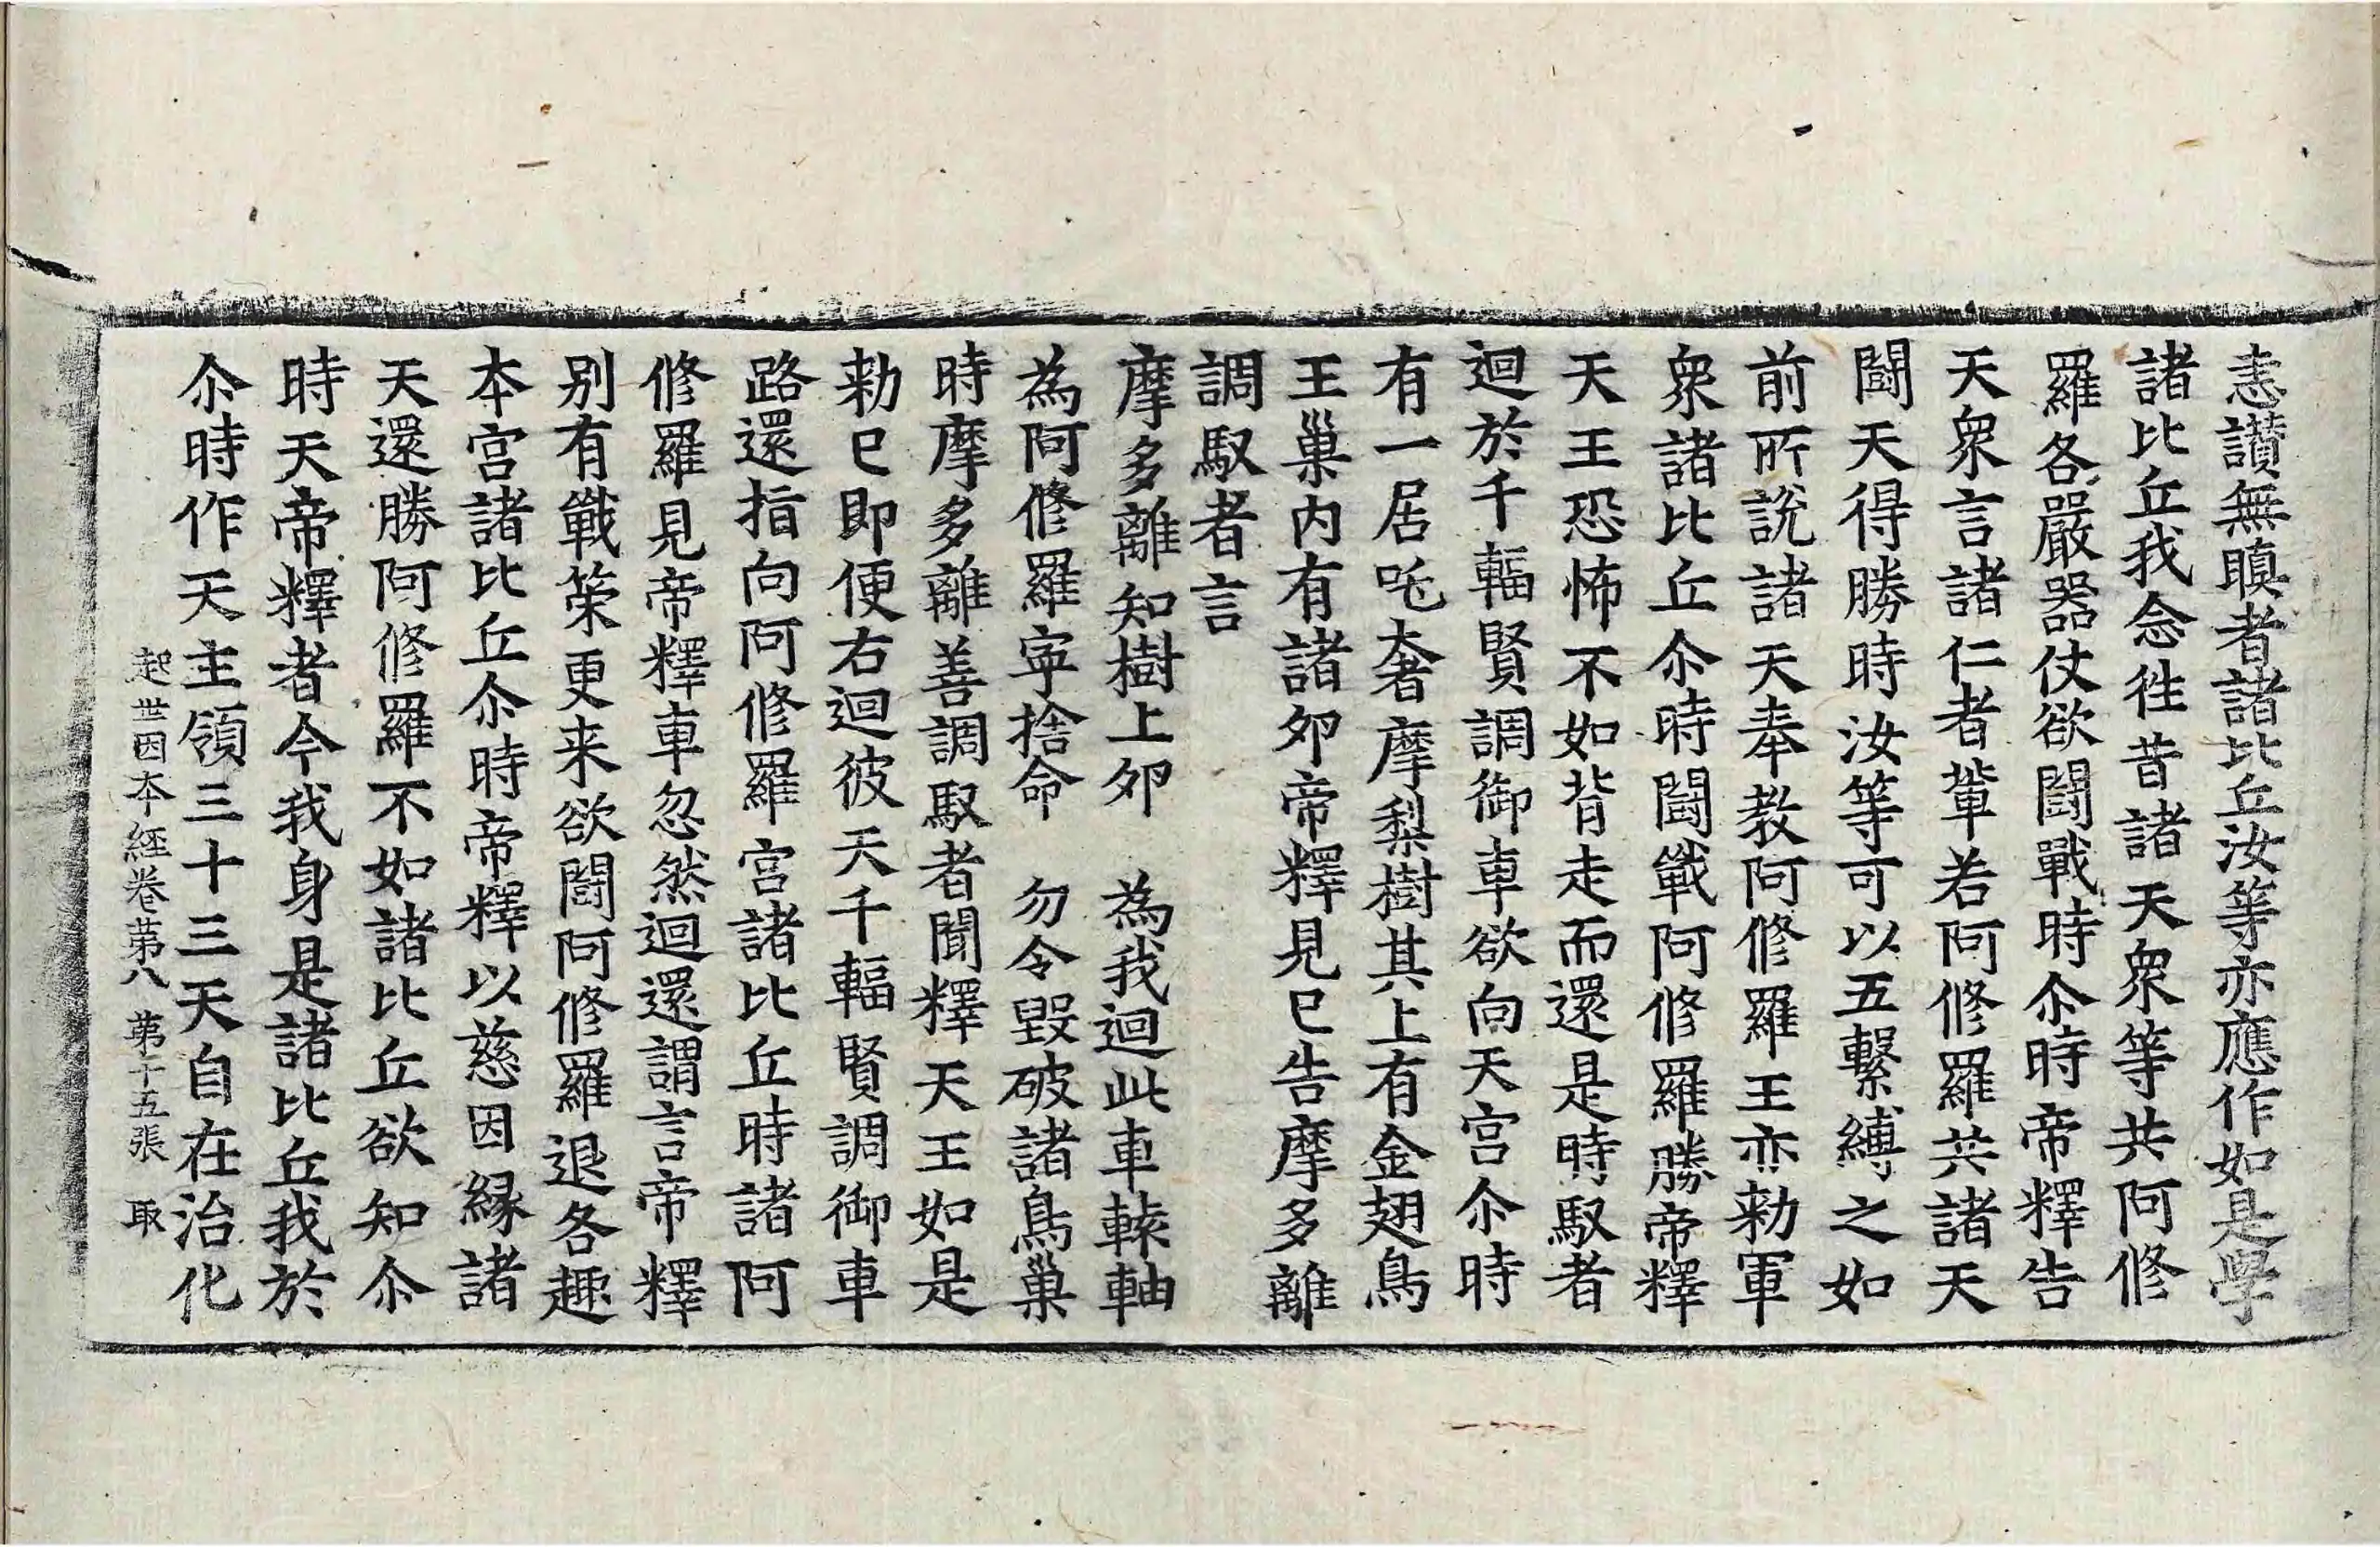 恚讃無瞋者諸比丘汝等亦應作如是學
諸比丘我念徃昔諸天衆等共阿修
羅各嚴器仗欲鬪戰時尒時帝釋告
天衆言諸仁者軰若阿修羅共諸天
鬪天得勝時汝等可以五繫縛之如
前所說諸天奉教阿修羅王亦勑軍
衆諸比丘尒時鬪戰阿修羅勝帝釋
天王恐怖不如背走而還是時馭者
迴於千輻賢調御車欲向天宮尒時
有一居吒奢摩梨樹其上有金翅鳥
王巢内有諸夘帝釋見巳告摩多離
調馭者言
摩多離知樹上夘　為我迴此車轅軸
為阿修羅寜捨命　勿令毀破諸鳥巢
時摩多離善調馭者聞釋天王如是
勑巳即便右迴彼天千輻賢調御車
路還指向阿修羅宮諸比丘時諸阿
修羅見帝釋車忽然迴還謂言帝釋
别有戰策更来欲鬪阿修羅退各趣
本宮諸比丘尒時帝釋以慈因縁諸
天還勝阿修羅不如諸比丘欲知尒
時天帝釋者今我身是諸比丘我於
尒時作天主領三十三天自在治化
起世因本經卷苐八　苐十五張　取